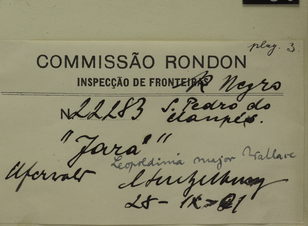 plag. 3.
COMMISSÃO RONDON
INSPECÇÃO DE FRONTEIRAS R. Negro
N. 22283 S. Pedro do
"Jará"
Leopoldinia major Wallace
Uferwald
28-IX-